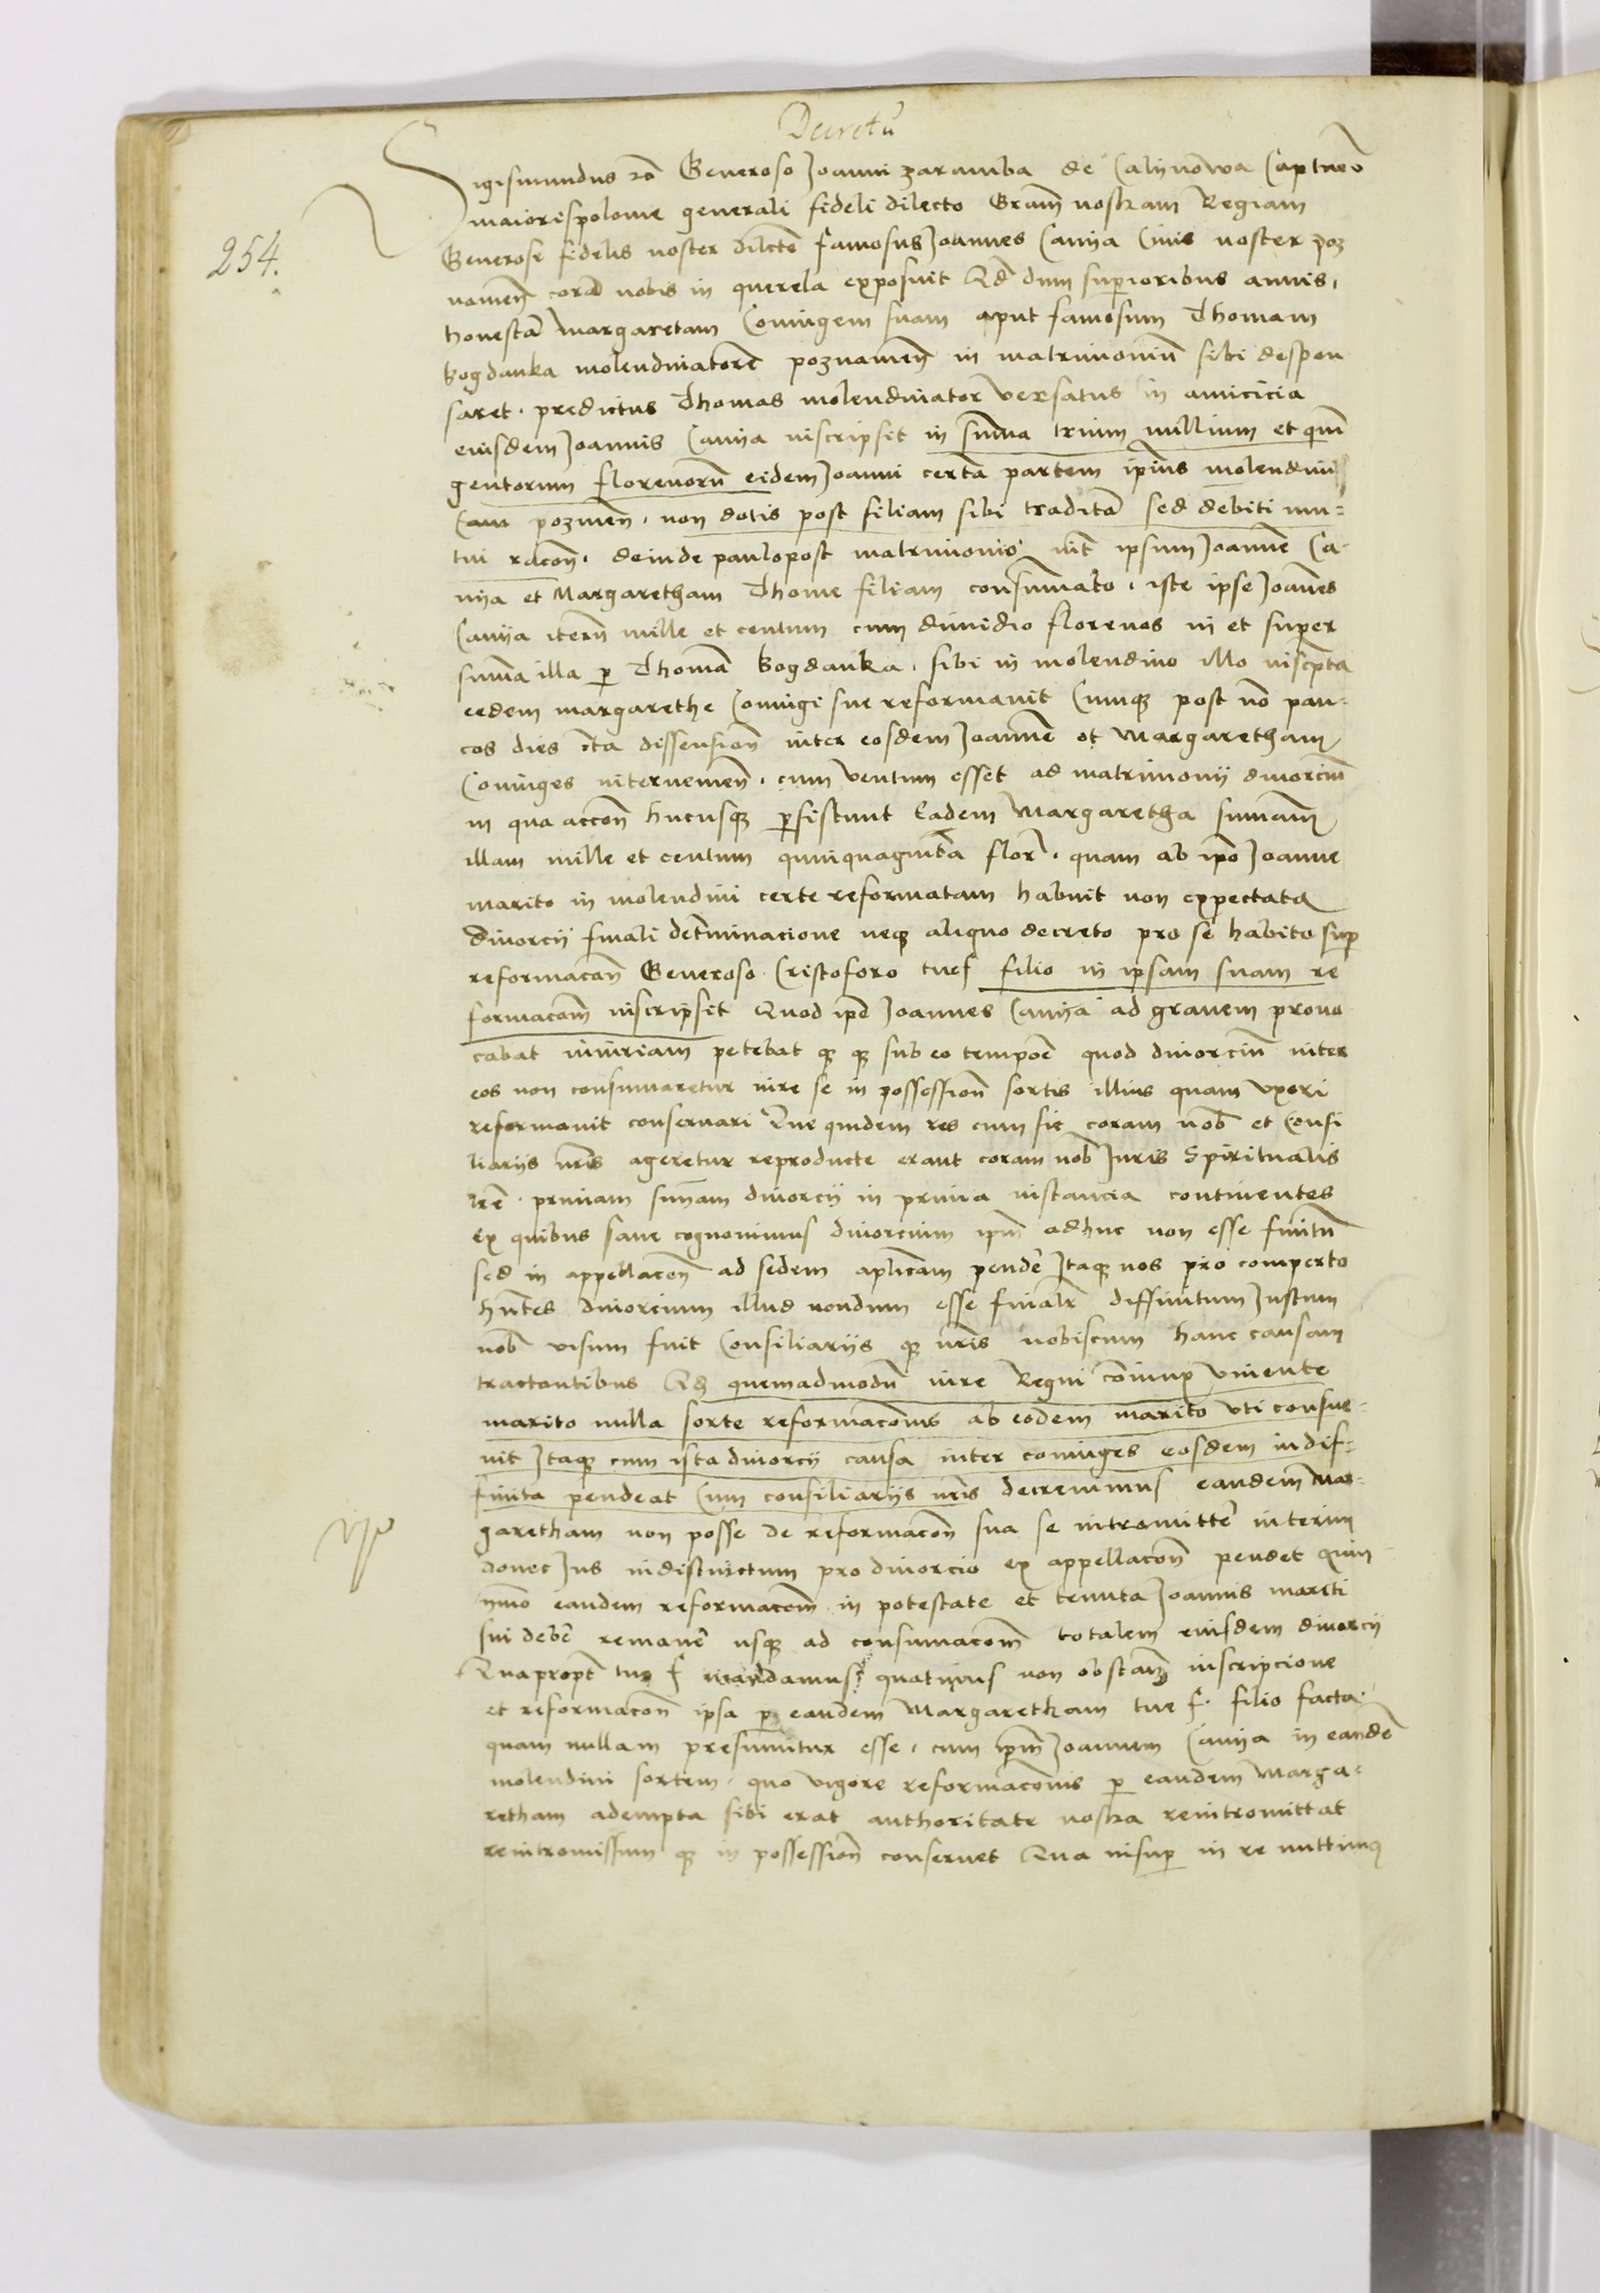 Decretū
Sigismundus zc̄ Generoso Joanni zaramba de Calijnowa Captneo
maiorispolonie generali fideli dilecto Gram̄ nostram Regiam
254.
Generose fidelis noster dilcte famosus Joannes Canija Civis noster poz
nanien̄ coram nobis in querela exposuit Qd̄ dum superioribus annis,
honestā Margaretam Coniugem suam aput famosum Thomam
Bogdanka molendinatorē poznanien̄ in matrimoniū sibi despon
saret. predictus Thomas molendinator versatus in amicicia
eiusdem Joannis Canija inscripsit in summa trium millium et quin
gentorum florenorū eidem Joanni certā partem ipius molendini
pozn̄en. non dotis post filiam sibi traditā sed debiti mu-
tui racōn. deinde paulopost matrimonio int̄ ipsum Joannē Ca-
nija et Margaretham Thome filiam consummato. iste ipse Joannes
Canija iterū mille et centum cum dimidio florenos in et super
summa illa p Thomā Bogdanka. sibi in molendino illo inscrpta
eedem margarethe Coniugi sue reformavit Cumq3 post nō pau-
cos dies ita dissension̄ inter eosdem Joannē et Margaretham
Coniuges intervenien̄. cum ventum esset ad matrimonij divorciū
in qua accōn hucusq3 persistunt Eadem Margaretha summam
illam mille et centum quinquaginta flor̄. quam ab ip̄o Joanne
marito in molendini certe reformatam habuit non expectata
divorcij finali det̄minacione neq3 aliquo decreto pro se habito sup
reformacōn Generoso Cristoforo tue f filio in ipsam suam re
formacōm inscripsit Quod ip̄e Joannes Canija ad gravem provo
cabat iniuriam petebat q3 q3 sub eo tempore quod divorciū inter
eos non consumaretur iure se in possession̄ sortis illius quam uxori
reformavit conservari Que quidem res cum sic coram nob̄ et Consi
liarijs nr̄is ageretur reproducte erant coram nob̄ Juris Spiritualis
lrē. primam sn̄iam divorcij in prima instancia continentes
ex quibus sane cognovimus divorcium ipm̄ adhuc non esse finitū
sed in appellacōn ad sedem aplicam pendē Itaq3 nos pro comperto
hn̄tes divorcium illud nondum esse finalr̄ diffinitum Justum
nob̄ visum fuit Consiliarijs q3 nr̄is nobiscum hanc causam
tractantibus Qd̄ quemadmodū iure Regni coniunx vivente
marito nulla sorte reformacōnis ab eodem marito uti consue-
vit Itaq3 cum ista divorcij causa inter coniuges eosdem indif-
finita pendeat Cum consiliarijs nr̄is decrevimus eandem Mar-
garetham non posse de reformacōn sua se intromittē interim
donec Jus indistinctum pro divorcio ex appellacōn pendet quin
ymo eandem reformacōm in potestate et tenuta Joannis mariti
sui debē remanē usq3 ad consumacōm totalem eiusdem divorcij
Quapropt̄ tue f mandamus quatinus non obstan̄ inscripcione
et reformacōn ipsa p eandem Margaretham tue f. filio facta
quam nullam presumitur esse. cum ipm̄ Joannem Canija in eandē
molendini sortem. quo vigore reformacōnis p eandem Marga-
retham adempta sibi erat authoritate nostra reintromittat
reintromissum q3 in possession̄ conservet Qua insup in re mittimus